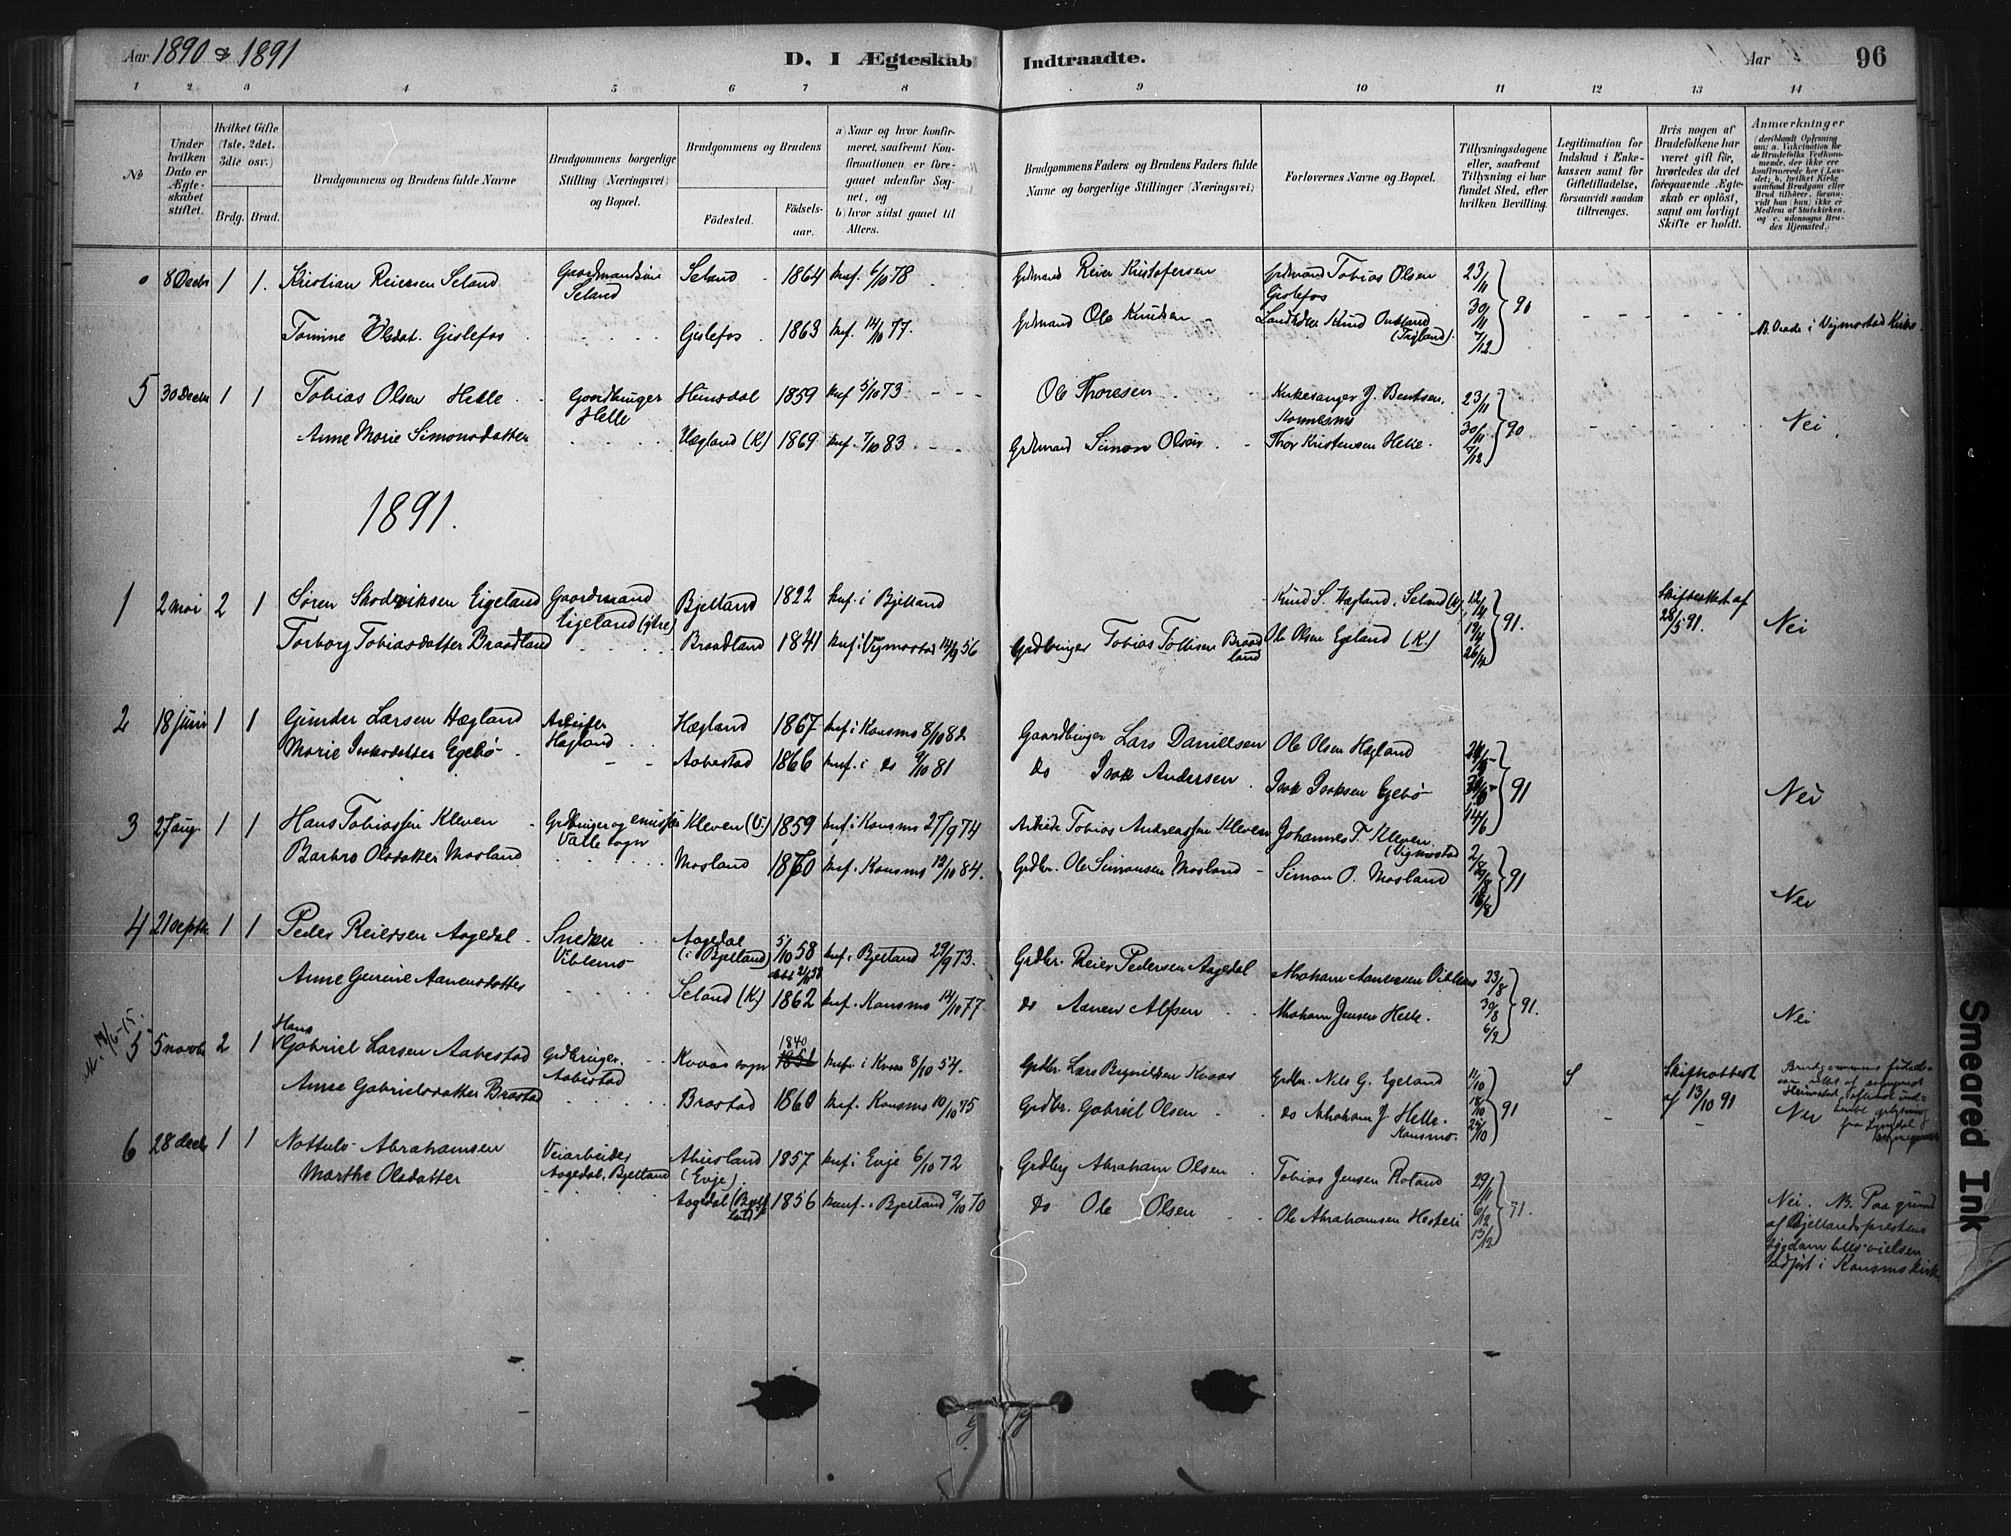 Aar 1890 & 1891
D. I Ægteskab Indtraadte.
Aar
96
1 2 3 4 5 6 7 8 9 10 11 12 13 14
No
Under hvilken Dato er Ægteskabet stiftet.
Hvilket Gifte (1ste, 2det, 3die osv.)
Brdg. Brud.
Brudgommens og Brudens fulde Navne
Brudgommens borgerlige Stilling (Næringsvei) og Bopæl.
Brudgommens og Brudens
Födested.
Födsels-aar.
a) Naar og hvor konfirmeret, saafremt Konfirmationen er foregaaet udenfor Sognet, og
b) hvor sidst gaaet til Alters.
Brudgommens Faders og Brudens Faders fulde Navne og borgerlige Stillinger (Næringsvei)
Forlovernes Navne og Bopæl.
Tillysningsdagene eller, saafremt Tillysning ei har fundet Sted, efter hvilken Bevilling.
Legitimation for Indskud i Enkekassen samt for Giftetilladelse, forsaavidt saadan tiltrænges.
Hvis nogen af Brudefolkene har været gift før, hvorledes da det foregaaende Ægteskab er opløst, samt om lovligt Skifte er holdt.
Anmærkninger
(deriblandt Oplysning om: a. Vakcination for de Brudefolks Vedkommende, der ikke ere konfirmerede her i Landet; b. hvilket Kirkesamfund Brudgom eller Brud tilhører, forsaavidt han (hun) ikke er Medlem af Statskirken, og c. udensogns Brudes Hjemsted.)
8 Decbr 1 1. Kristian Reiersen Seland Gaardmandssøn Seland Seland 1864 knf. 6/10 78 Grdmand Reier Kristofersen Grdmand Tobias Olsen Gislefos 23/11
Tomine Olsdat. Gislefos Gislefos 1863 knf. 14/10 77. Grdmand Ole Knudsen Knud 30/11 7/12 90 NB. Viede i Vigmostad Kirke.
5 30 Decbr 1 1 Tobias Olsen Helle Gaardbruger Helle Heimdal 1859 knf 5/10 73 Ole Thoresen Kirkesanger J. Bentsen, 23/11
Anne Marie Simonsdatter Hægland (K) 1869 knf. 7/10 83 Grdmand Simon Olsen Thor Kristensen Helle. 30/11 7/12 90 Nei.
1891.
1 2 mai 2 1 Søren Eigeland Gaardmand Eigeland Bjelland 1822 knf. i Bjelland Knud S. Hægland, Seland 12/4 Skifteattest af 28/5 91. Nei
Torborg Tobiasdatter Braadland Braadland 1841 knf. i Vigmostad 14/9 56 Grdbruger Tobias Tollisen Braadland Ole Olsen Egeland (K) 19/4 26/4 91.
2 18 juni 1 1 Gunder Larsen Hægland Hægland Hægland 1867 knf i Konsmo 8/10 82 Gaardbruger Lars Daniellsen Ole Olsen Hægland
Marie Isaksdatter Egebø Aabestad 1866 knf. i do 9/10 81 do Isak Andersen. Isak Isaksen Egebø 14/6 91 Nei
3 27 aug. 1 1 Hans Tobiassen Kleven Grdbruger og Valle sogn Kleven (V) 1859 knf i Konsmo 27/9 74 Tobias Andreassen Kleven Johannes T. Kleven. (Vigmostad 2/8
Barbro Olsdatter Mosland Mosland 1870 knf. Konsmo 12/10 84. Grdbr. Ole Simonsen Mosland Simon O. Mosland 9/8 16/8 91 Nei
4 21 septbr 1 1 Peder Reiersen Aagedal Snedker Viblemo Aagedal (i Bjelland) 5/10 58 knf. Bjelland 29/9 73. Grdbr. Reier Pedersen Aagedal Abraham Aanensen Viblemo 23/8
Anne Gurine Aanensdatter Seland (K.) 1862 knf. Konsmo 14/10 77. do Aanen Alfsen Abraham Jensen Helle. 30/8 6/9 91. Nei
5 5 novbr 2 1 Hans Gabriel Larsen Aabestad Grdbruger. Aabestad Kvaas sogn 1840 1851 knf. i Kvaas 8/10 54. Grdbr. Lars Kvaas Grdbr. Nils G. Egeland 11/10 Skifteattest af 13/10 91
Anne Gabrielsdatter Brastad Brastad 1860 knf. Konsmo 10/10 75 Grdbr. Gabriel Olsen do Abraham J Helle. Konsmo. 18/10 25/10 91 Nei
6 28 decbr 1 1 Nottulv Abrahamsen Veiarbeider Aagedal, Bjelland (Evje). 1857 knf i Evje 6/10 72 Grdbrg Abraham Olsen Tobias Jensen Roland 29/11
Marthe Olsdatter Aagedal (Bjelland) 1856 konf. i Bjelland 9/10 70 do Ole Olsen Ole Abrahamsen 6/12 13/12 91. Nei. NB. Paa grund af Bjellandsprestens sygdom blev vielsen udført i Konsmo kirke
Smeared Ink